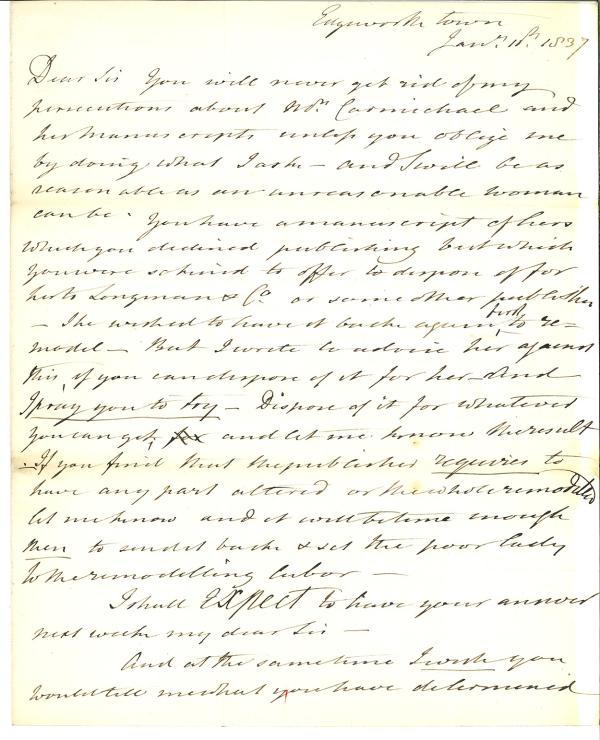 Edgeworthstown
Jany. 11th. 1837
Dear Sir You will never get rid of my
persecutions about Mrs. Carmichael and
her manuscripts unless you oblige me
by doing what I ask – and I will be as
reasonable as an unreasonable woman
can be. You have a manuscript of hers
which you declined publishing but which
you were so kind to offer to dispose of for
her to Longman & Co or some other publisher
– She wished to have it back again, first to re=
model – But I wrote to advise her against
this, if you can dispose of it for her – And
I pray you to try – Dispose of it for whatever
you can get, and let me know the result
– If you find that the publisher requires to
have any part altered or the whole remodelled
let me know and it will be time enough
then to send it back & set the poor lady
to the remodelling labor –
I shall EXPECT to have your answer
next week my dear Sir –
And at the same time I wish you
would tell me what you have determined